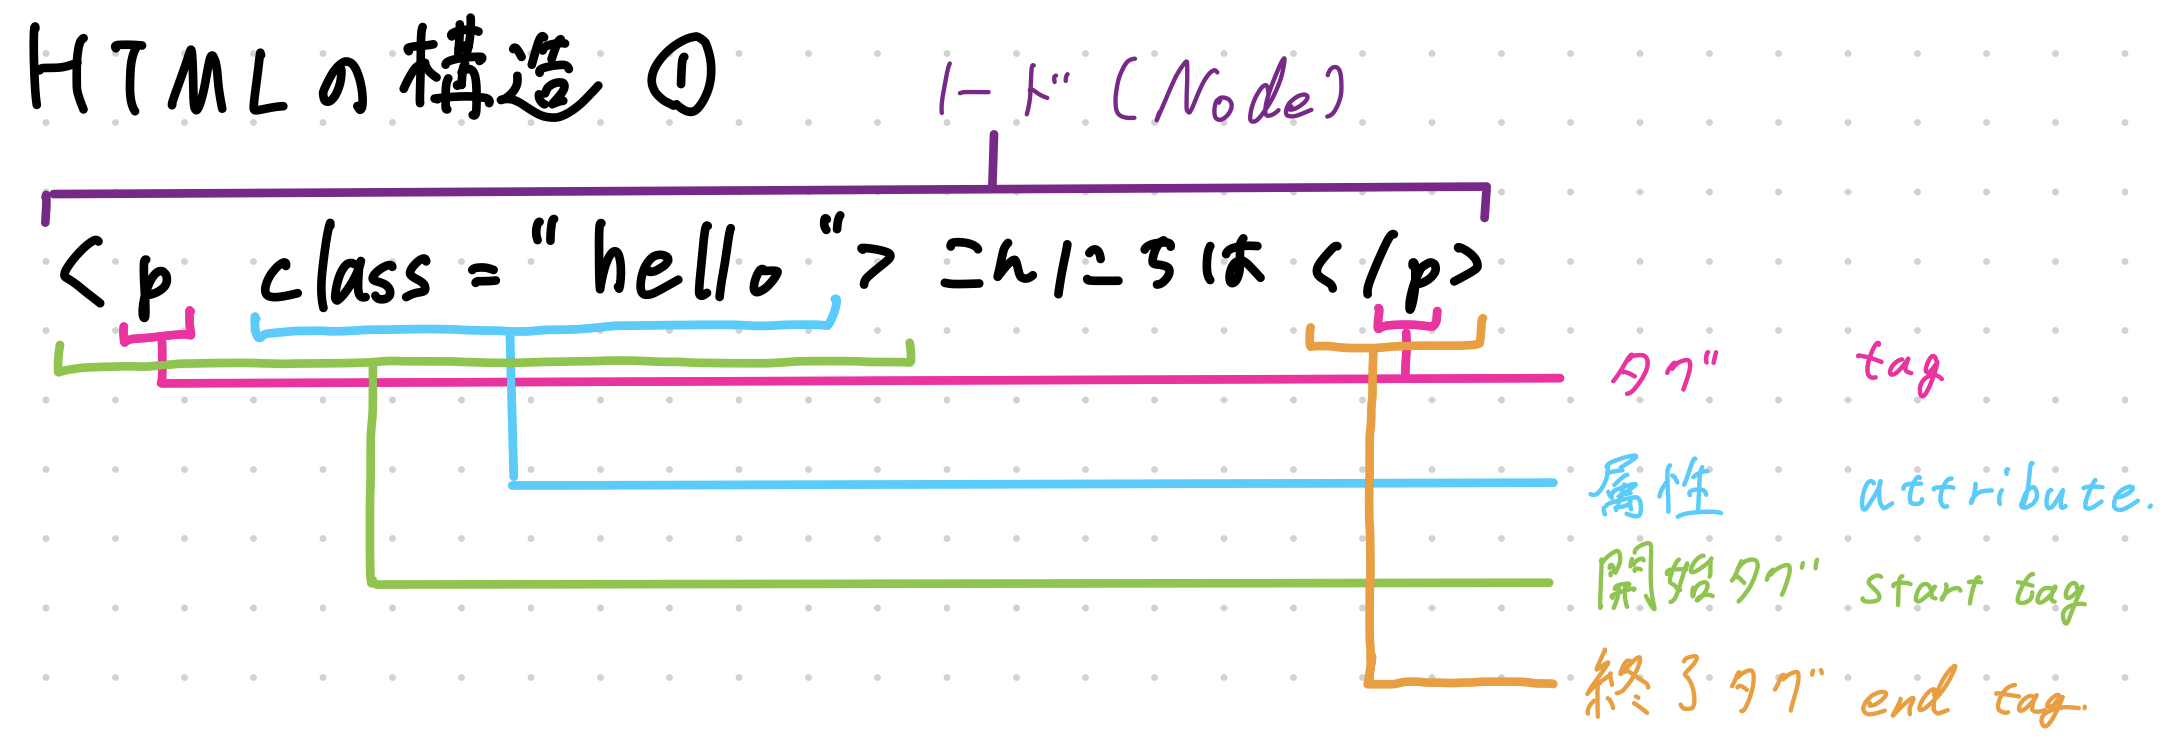 HTMLの構造 ①
ノード (Node)
<p class="hello">こんにちは</p>
タグ tag
属性 attribute.
開始タグ start tag
終了タグ end tag.